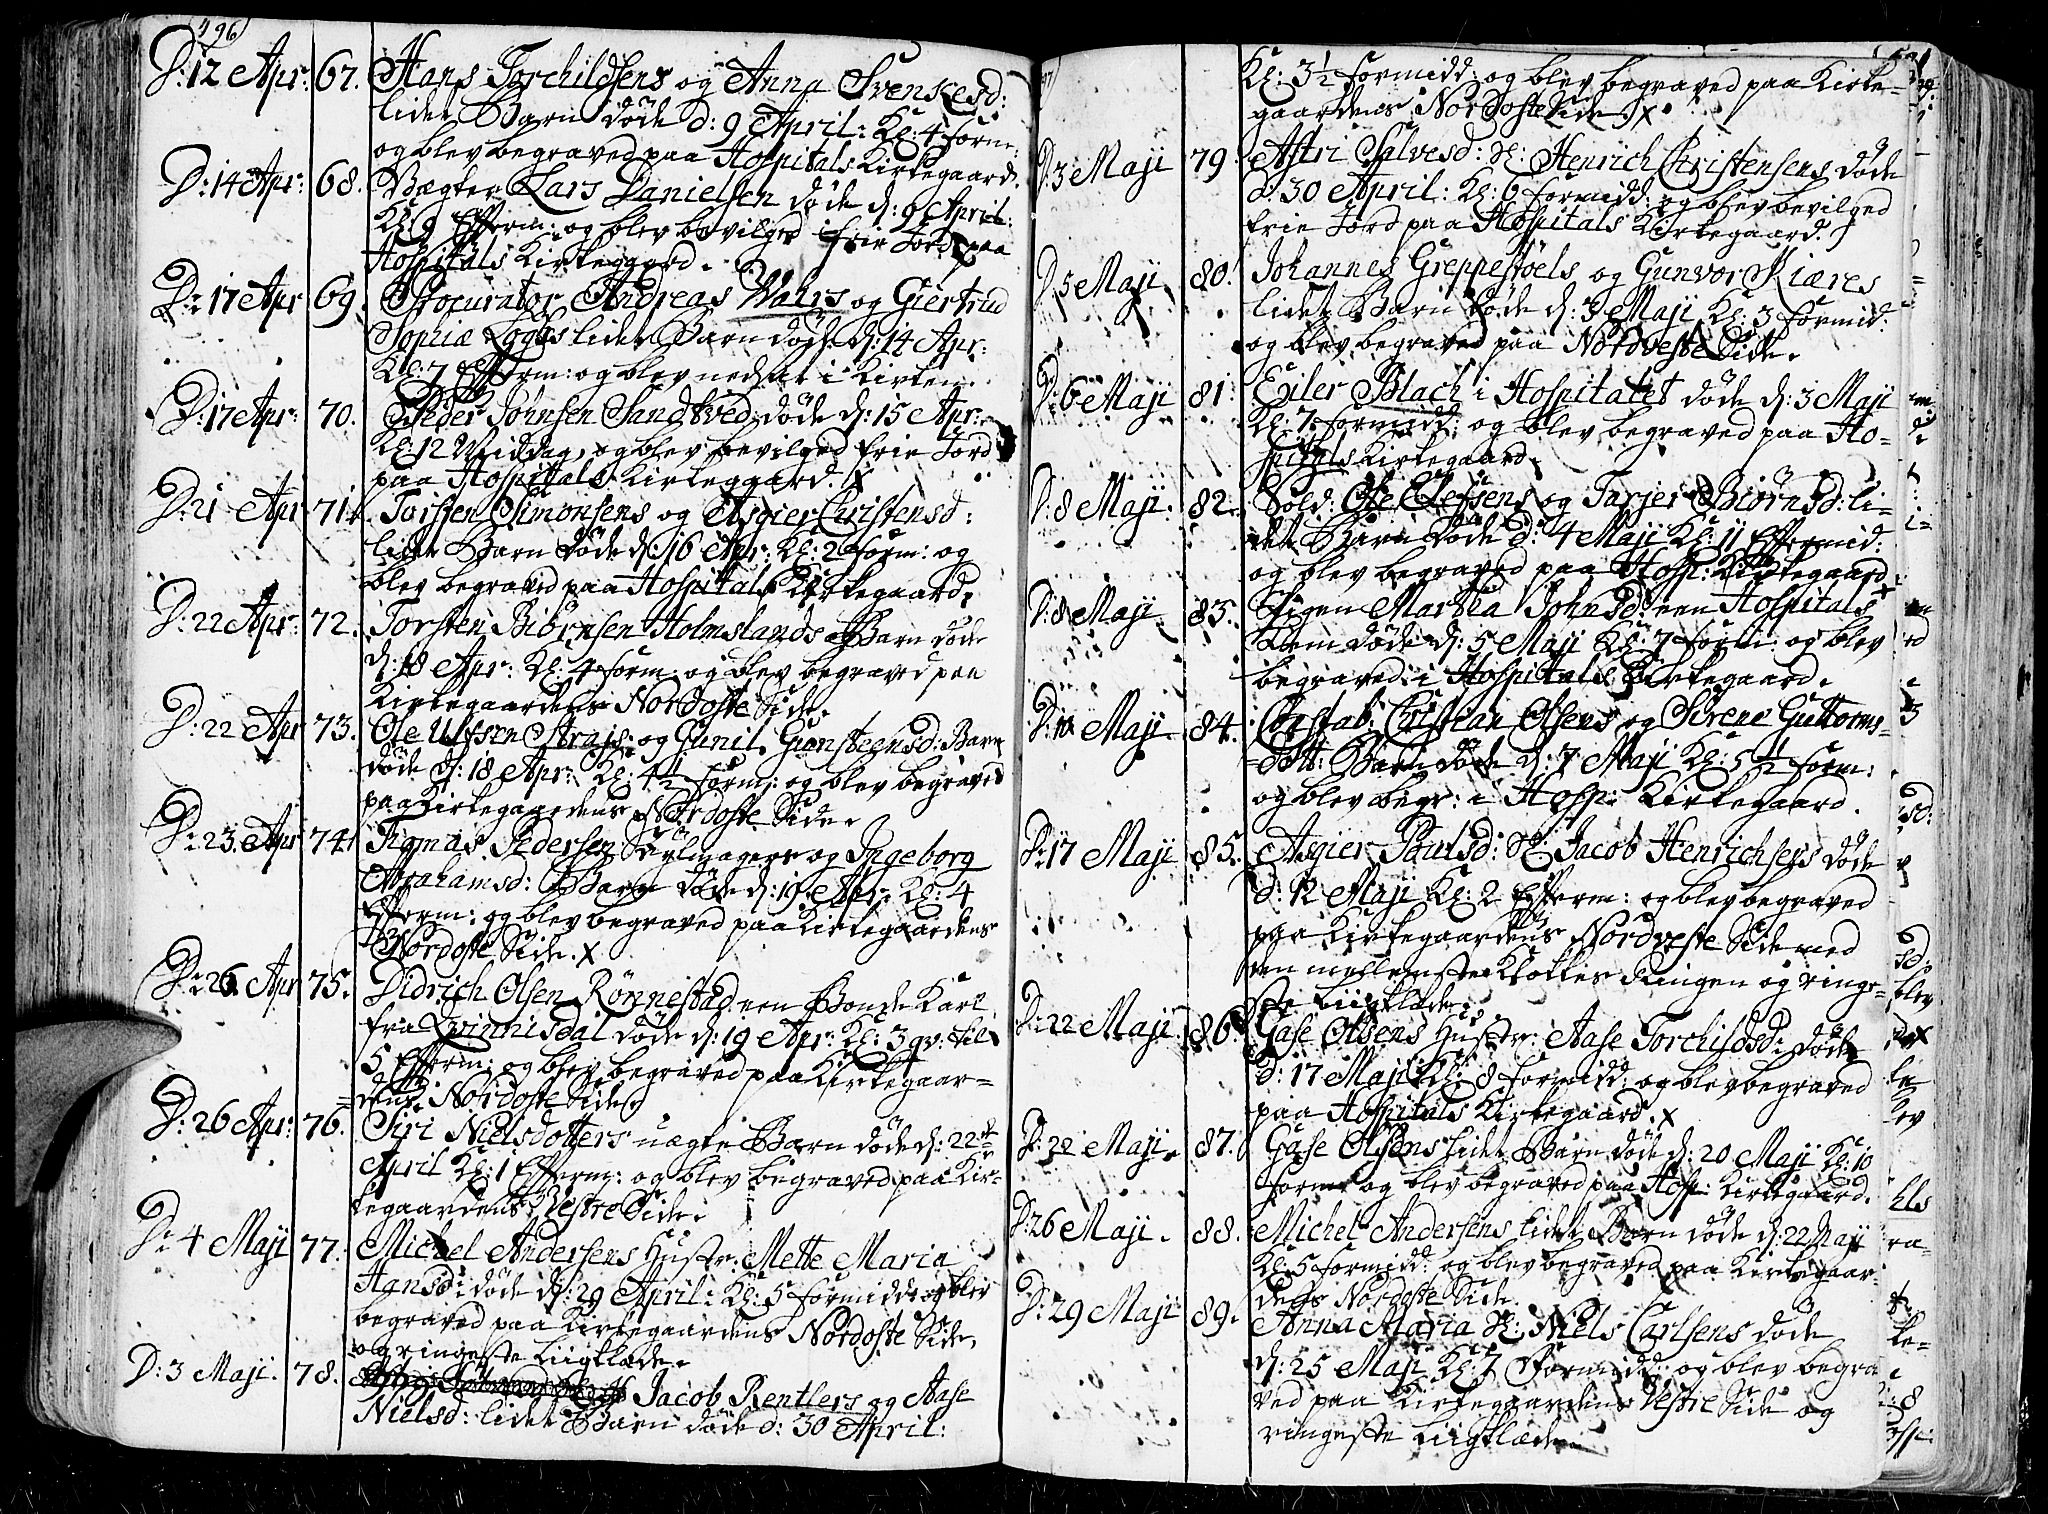 496
D: 12 Apr: 67. Hans Torchildsens og Anna Svenkesd:
lidet Barn døde d: 9 April: Kl: 4 form:
og blev begraved paa Hospitals Kirkegaard.
D: 14 Apr: 68. Vægter Lars Danielsen døde d: 9 April:
Kl: 9 Efterm: og blev bevilged frie Jord paa
Hospitals Kirkegaard.
D: 17 Apr 69. Procurator Andreas Wahrs og Giertrud
Sophiæ lidet Barn døde d: 14 Apr:
Kl: 7 Efterm: og blev nedsat i Kirken.
D: 17 Apr: 70. Peder Johnsen Sandtved døde d: 15 Apr:
Kl: 12 Middag, og blev bevilged frie Jord
paa Hospitals Kirkegaard. X
D: 21 Apr 71. Torsten Simonsens og Asgier Christensd:
lidet Barn døde d: 16 Apr: Kl: 2 form: og
blev begraved paa Hospitals Kirkegaard.
D: 22 Apr: 72. Torsten Biørnsen Holmslands Barn døde
d: 18 Apr: Kl: 4 form: og blev begraved paa
Kirkegaardens Nordoste Side.
D: 22 Apr 73. Ole Ulfsen Strajs og Gunil Gunsteensd: Barn
døde d: 18 Apr: Kl: 4½ form: og blev begraved
paa Kirkegaardens Nordoste Side.
D: 23 Apr 74. Tigmas Pedersen og Ingeborg
Abrahamsd: Barn døde d: 19 Apr: Kl: 4
Efterm: og blev begraved paa Kirkegaardens
Nordoste Side. X
D: 26 Apr 75. Didrich Olsen Rønnestad een Bonde Karl
fra Qvinnisdal døde d: 19 Apr: Kl: 3 qv: til
5 Efterm: og blev begraved paa Kirkegaar=
=dens Nordoste Side.
D: 26 Apr: 76. Siri Nielsdotters uægte Barn døde d: 22de
April Kl: 1 Efterm: og blev begraved paa Kir=
kegaardens Vestre Side.
D: 4 Maji 77. Michel Andersens Hustr: Mette Maria
Hansd: døde d: 29 April: Kl: 5 formidd: og blev
begraved paa Kirkegaardens Nordoste Side,
og ringeste Liigklæde.
D: 3 Maji. 78. Jacob Rentlers og Aase
Nielsd: lidet Barn døde d: 30 April:
Kl: 3½ formidd: og blev begraved paa Kirke=
gaardens Nordoste Side. X
D: 3 Maji 79. Astri Salvesd: H: Henrich Christensens døde
d: 30 April: Kl: 6 formidd: og blev bevilged
frie Jord paa Hospitals Kirkegaard.
D: 5 Maji. 80. Johannes Greppestøels og Gunvor Kiæres
lidet Barn døde d: 3 Maji Kl: 3 formid:
og blev begraved paa Nordveste Side.
D: 6 Maji 81. Eiler Blach i Hospitalet døde d: 3 Maji
Kl: 7 formidd: og blev begraved paa Ho=
spitals Kirkegaard.
D: 8 Maji. 82. Sold: Ole Olefsens og Tarjer Biørnsd: li=
det Barn døde d: 4 Maji Kl: 11 Eftermid:
og blev begraved paa Hosp: Kirkegaard
D: 8 Maji 83. Pigen Martha Johnsd: een Hospitals
Lem døde d: 5 Maji Kl: 7 form: og blev
begraved i Hospitals Kirkegaard.
D: 10 Maji 84. Constab: Cristian Olsens og Sirene Guttorms=
=dott: Barn døde d: 7 Maji Kl: 5½ form:
og blev begr: i Hosp: Kirkegaard.
D: 17 Maji 85. Asgier Poulsd: H: Jacob Henrichsens døde
d: 12 Maji Kl: 2 Efterm: og blev begraved
paa Kirkegaardens Nordveste Side med
den mellemste Klokkes Ringen og ringe=
ste Liigklæde.
D: 22 Maji 86. Gase Olsens Hustr: Aase Torchildsd: døde
d: 17 Maji Kl: 8 formidd: og blev begraved
paa Hospitals Kirkegaard. X
D: 22 Maji. 87. Gase Olsens lidet Barn døde d: 20 Maji Kl: 10
form: og blev begraved paa Hosp: Kirkegaard.
D: 26 Maji. 88. Michel Andersens lidet Barn døde d: 22 Maji
Kl: 5 formidd: og blev begraved paa Kirkegaar=
dens Nordoste Side.
D: 29 Maji 89. Anna Maria H: Niels Carlsens døde
d: 25 Maji Kl: 7 Formidd: og blev begra
ved paa Kirkegaardens Vestre Side og
ringeste Liigklæde.